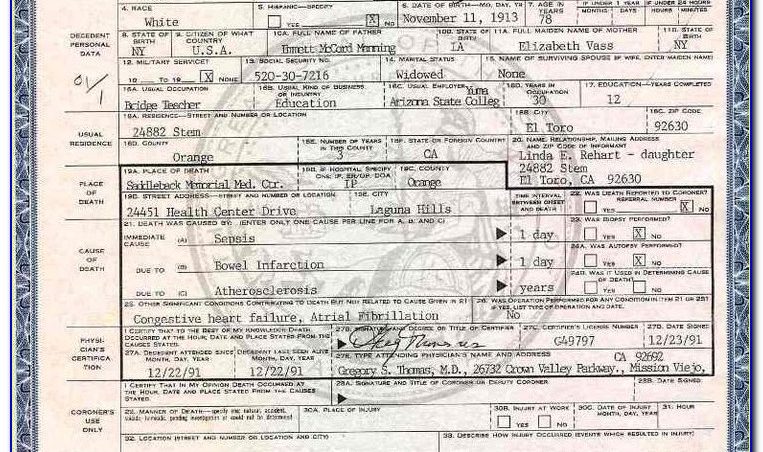 4. RACE 5. HISPANIC—SPECIFY 6. DATE OF BIRTH—MO, DAY, YR 7. AGE IN YEARS IF UNDER 1 YEAR IF UNDER 24 HOURS
White YES X NO November 11, 1913 78 MONTHS DAYS HOURS MINUTES
DECEDENT PERSONAL DATA
8. STATE OF BIRTH 9. CITIZEN OF WHAT COUNTRY 10A. FULL NAME OF FATHER 10B. STATE OF BIRTH 11A. FULL MAIDEN NAME OF MOTHER 11B. STATE OF BIRTH
NY U.S.A. Emmett McCord Manning IA Elizabeth Vass NY
12. MILITARY SERVICE? 13. SOCIAL SECURITY NO. 14. MARITAL STATUS 15. NAME OF SURVIVING SPOUSE (IF WIFE, ENTER MAIDEN NAME)
19 TO 19 X NONE 520-30-7216 Widowed None
16A. USUAL OCCUPATION 16B. USUAL KIND OF BUSINESS OR INDUSTRY 16C. USUAL EMPLOYER 16D. YEARS IN OCCUPATION 17. EDUCATION—YEARS COMPLETED
Bridge Teacher Education Yuma Arizona State Colleg 30 12
USUAL RESIDENCE
18A. RESIDENCE—STREET AND NUMBER OR LOCATION 18B. CITY 18C. ZIP CODE
24882 Stem El Toro 92630
18D. COUNTY 18E. NUMBER OF YEARS IN THIS COUNTY 18F. STATE OR FOREIGN COUNTRY 20. NAME, RELATIONSHIP, MAILING ADDRESS AND ZIP CODE OF INFORMANT
Orange 3 CA Linda E. Rehart - daughter
24882 Stem
El Toro, CA 92630
PLACE OF DEATH
19A. PLACE OF DEATH 19B. IF HOSPITAL, SPECIFY ONE: IP, ER/OP, DOA 19C. COUNTY
Saddleback Memorial Med. Ctr. IP Orange
19D. STREET ADDRESS—STREET AND NUMBER OR LOCATION 19E. CITY TIME INTERVAL BETWEEN ONSET AND DEATH 22. WAS DEATH REPORTED TO CORONER? REFERRAL NUMBER
24451 Health Center Drive Laguna Hills YES X NO
CAUSE OF DEATH
21. DEATH WAS CAUSED BY: (ENTER ONLY ONE CAUSE PER LINE FOR A, B, AND C) 23. WAS BIOPSY PERFORMED?
IMMEDIATE CAUSE (A) Sepsis 1 day YES X NO
24A. WAS AUTOPSY PERFORMED?
DUE TO (B) Bowel Infarction 1 day YES X NO
24B. WAS IT USED IN DETERMINING CAUSE OF DEATH?
DUE TO (C) Atherosclerosis years YES NO
25. OTHER SIGNIFICANT CONDITIONS CONTRIBUTING TO DEATH BUT NOT RELATED TO CAUSE GIVEN IN 21 26. WAS OPERATION PERFORMED FOR ANY CONDITION IN ITEM 21 OR 25? IF YES, LIST TYPE OF OPERATION AND DATE.
Congestive heart failure, Atrial Fibrillation No
PHYSICIAN'S CERTIFICATION
I CERTIFY THAT TO THE BEST OF MY KNOWLEDGE DEATH OCCURRED AT THE HOUR, DATE AND PLACE STATED FROM THE CAUSES STATED. 27B. SIGNATURE AND DEGREE OR TITLE OF CERTIFIER 27C. CERTIFIER'S LICENSE NUMBER 27D. DATE SIGNED
G49797 12/23/91
27A. DECEDENT ATTENDED SINCE MONTH, DAY, YEAR DECEDENT LAST SEEN ALIVE MONTH, DAY, YEAR 27E. TYPE ATTENDING PHYSICIAN'S NAME AND ADDRESS CA 92692
12/22/91 12/22/91 Gregory S. Thomas, M.D., 26732 Crown Valley Parkway., Mission Viejo,
CORONER'S USE ONLY
I CERTIFY THAT IN MY OPINION DEATH OCCURRED AT THE HOUR, DATE AND PLACE STATED FROM THE CAUSES STATED. 28A. SIGNATURE AND TITLE OF CORONER OR DEPUTY CORONER 28B. DATE SIGNED
29. MANNER OF DEATH—specify one: natural, accident, suicide, homicide, pending investigation or could not be determined 30A. PLACE OF INJURY 30B. INJURY AT WORK 30C. DATE OF INJURY MONTH, DAY, YEAR 31. HOUR
YES NO
32. LOCATION (STREET AND NUMBER OR LOCATION AND CITY) 33. DESCRIBE HOW INJURY OCCURRED (EVENTS WHICH RESULTED IN INJURY)